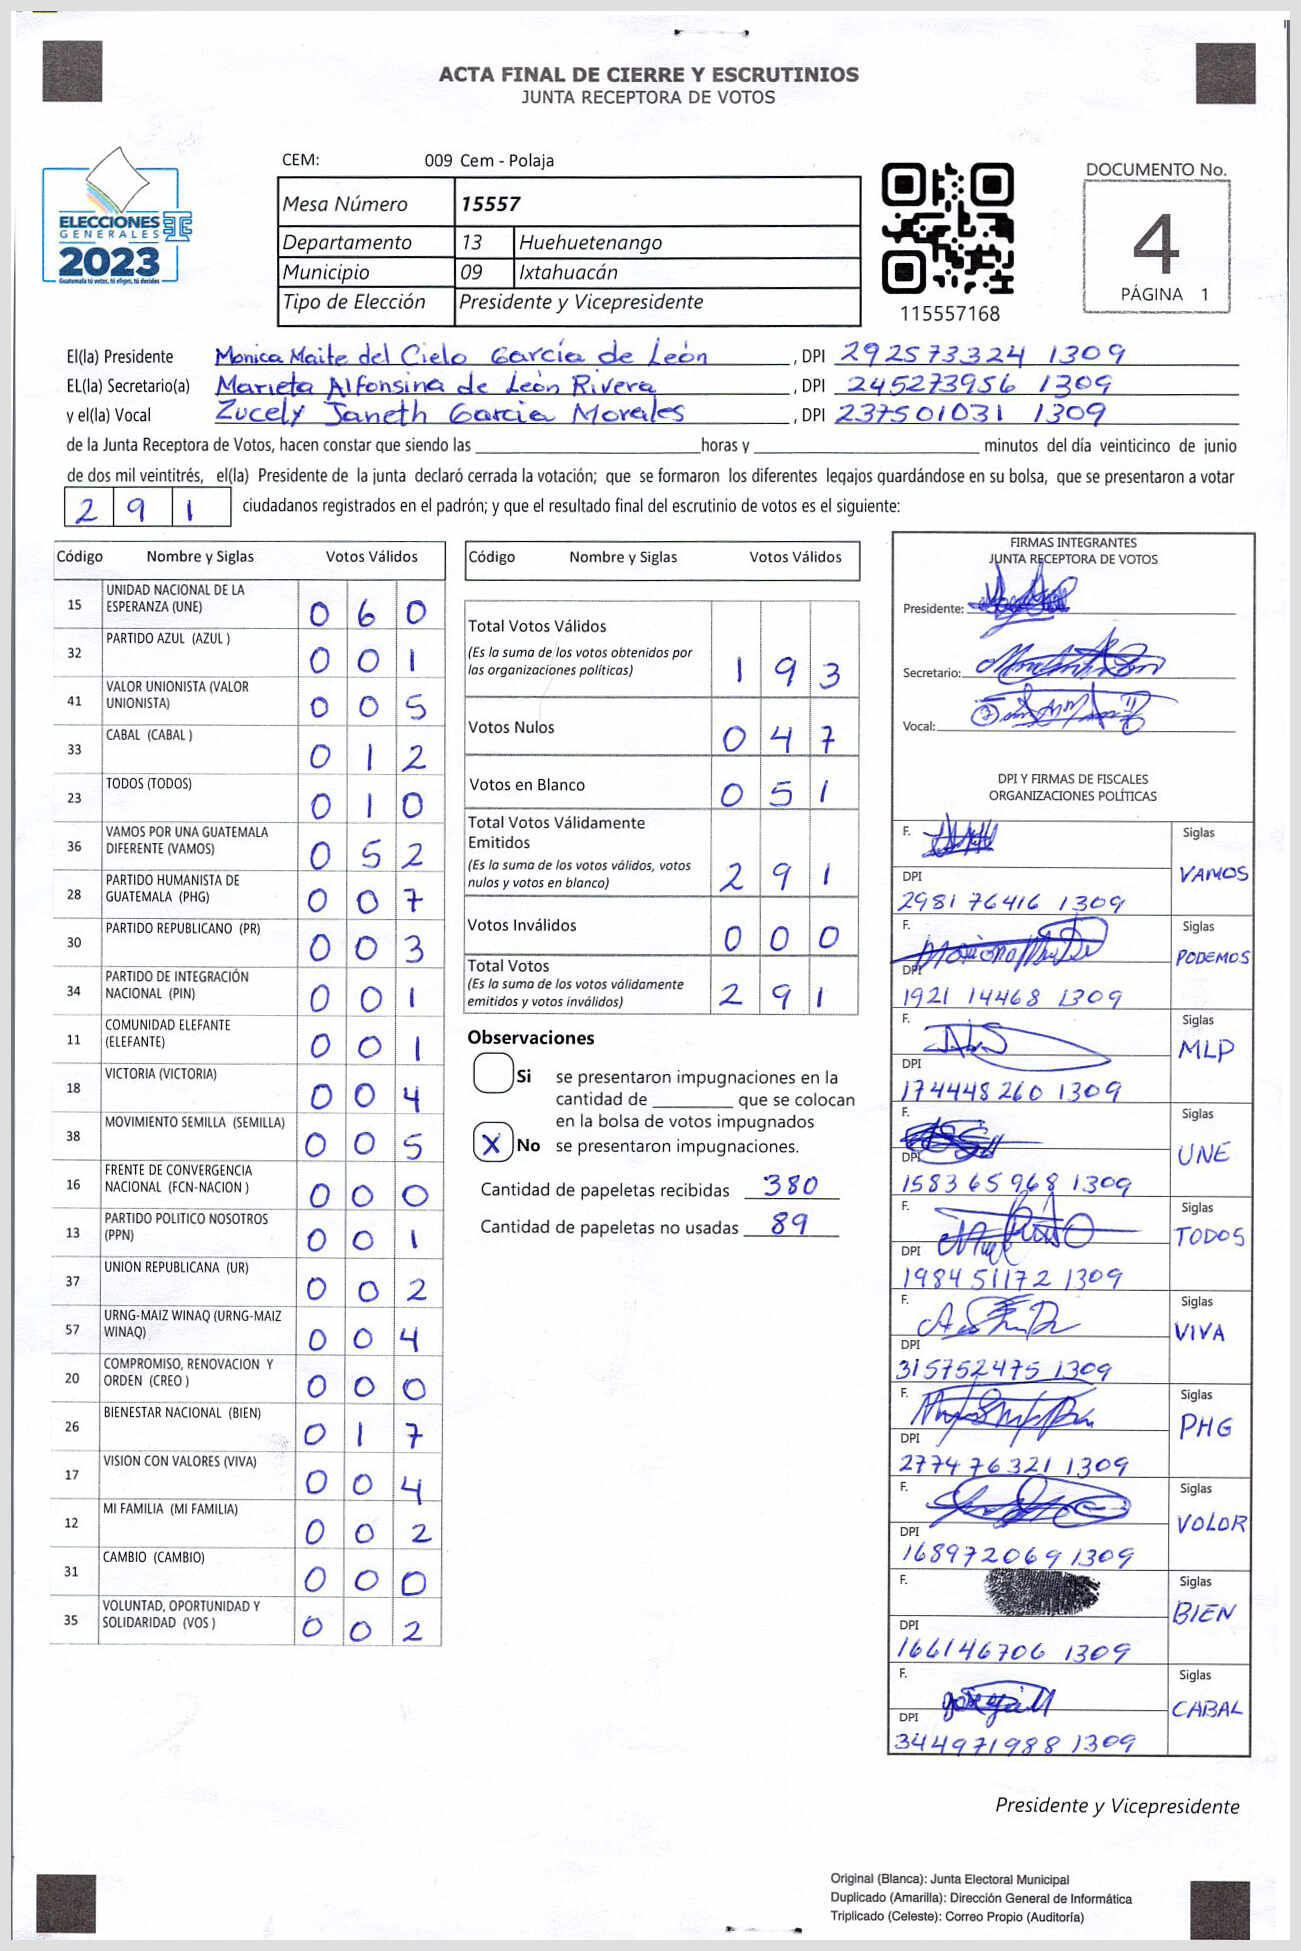 ACTA FINAL DE CIERRE Y ESCRUTINIOS
JUNTA RECEPTORA DE VOTOS
ELECCIONES
GENERALES
2023
Guatemala tú votas, tú eliges, tú decides
CEM: 009 Cem - Polaja
Mesa Número 15557
Departamento 13 Huehuetenango
Municipio 09 Ixtahuacán
Tipo de Elección Presidente y Vicepresidente
115557168
DOCUMENTO No.
4
PÁGINA 1
El(la) Presidente Monica Maite del Cielo García de León , DPI 292573324 1309
EL(la) Secretario(a) Marieta Alfonsina de León Rivera , DPI 245273956 1309
y el(la) Vocal Zucely Janeth Garcia Morales , DPI 237501031 1309
de la Junta Receptora de Votos, hacen constar que siendo las horas y minutos del día veinticinco de junio
de dos mil veintitrés, el(la) Presidente de la junta declaró cerrada la votación; que se formaron los diferentes legajos guardándose en su bolsa, que se presentaron a votar
2 9 1 ciudadanos registrados en el padrón; y que el resultado final del escrutinio de votos es el siguiente:
Código Nombre y Siglas Votos Válidos
15 UNIDAD NACIONAL DE LA
ESPERANZA (UNE) 0 6 0
32 PARTIDO AZUL (AZUL ) 0 0 1
41 VALOR UNIONISTA (VALOR
UNIONISTA) 0 0 5
33 CABAL (CABAL ) 0 1 2
23 TODOS (TODOS) 0 1 0
36 VAMOS POR UNA GUATEMALA
DIFERENTE (VAMOS) 0 5 2
28 PARTIDO HUMANISTA DE
GUATEMALA (PHG) 0 0 7
30 PARTIDO REPUBLICANO (PR) 0 0 3
34 PARTIDO DE INTEGRACIÓN
NACIONAL (PIN) 0 0 1
11 COMUNIDAD ELEFANTE
(ELEFANTE) 0 0 1
18 VICTORIA (VICTORIA) 0 0 4
38 MOVIMIENTO SEMILLA (SEMILLA) 0 0 5
16 FRENTE DE CONVERGENCIA
NACIONAL (FCN-NACION ) 0 0 0
13 PARTIDO POLITICO NOSOTROS
(PPN) 0 0 1
37 UNION REPUBLICANA (UR) 0 0 2
57 URNG-MAIZ WINAQ (URNG-MAIZ
WINAQ) 0 0 4
20 COMPROMISO, RENOVACION Y
ORDEN (CREO ) 0 0 0
26 BIENESTAR NACIONAL (BIEN) 0 1 7
17 VISION CON VALORES (VIVA) 0 0 4
12 MI FAMILIA (MI FAMILIA) 0 0 2
31 CAMBIO (CAMBIO) 0 0 0
35 VOLUNTAD, OPORTUNIDAD Y
SOLIDARIDAD (VOS ) 0 0 2
Código Nombre y Siglas Votos Válidos
Total Votos Válidos
(Es la suma de los votos obtenidos por
las organizaciones políticas) 1 9 3
Votos Nulos 0 4 7
Votos en Blanco 0 5 1
Total Votos Válidamente
Emitidos
(Es la suma de los votos válidos, votos
nulos y votos en blanco) 2 9 1
Votos Inválidos 0 0 0
Total Votos
(Es la suma de los votos válidamente
emitidos y votos inválidos) 2 9 1
Observaciones
Si se presentaron impugnaciones en la
cantidad de que se colocan
en la bolsa de votos impugnados
X No se presentaron impugnaciones.
Cantidad de papeletas recibidas 380
Cantidad de papeletas no usadas 89
FIRMAS INTEGRANTES
JUNTA RECEPTORA DE VOTOS
Presidente:
Secretario:
Vocal:
DPI Y FIRMAS DE FISCALES
ORGANIZACIONES POLÍTICAS
F. Siglas
VAMOS
DPI
2981 76416 1309
F. Siglas
PODEMOS
DPI
1921 14468 1309
F. Siglas
MLP
DPI
174448 260 1309
F. Siglas
UNE
DPI
158365968 1309
F. Siglas
TODOS
DPI
1984 51172 1309
F. Siglas
VIVA
DPI
315752475 1309
F. Siglas
PHG
DPI
277476321 1309
F. Siglas
VOLOR
DPI
168972069 1309
F. Siglas
BIEN
DPI
166146706 1309
F. Siglas
CABAL
DPI
344971988 1309
Presidente y Vicepresidente
Original (Blanca): Junta Electoral Municipal
Duplicado (Amarilla): Dirección General de Informática
Triplicado (Celeste): Correo Propio (Auditoría)